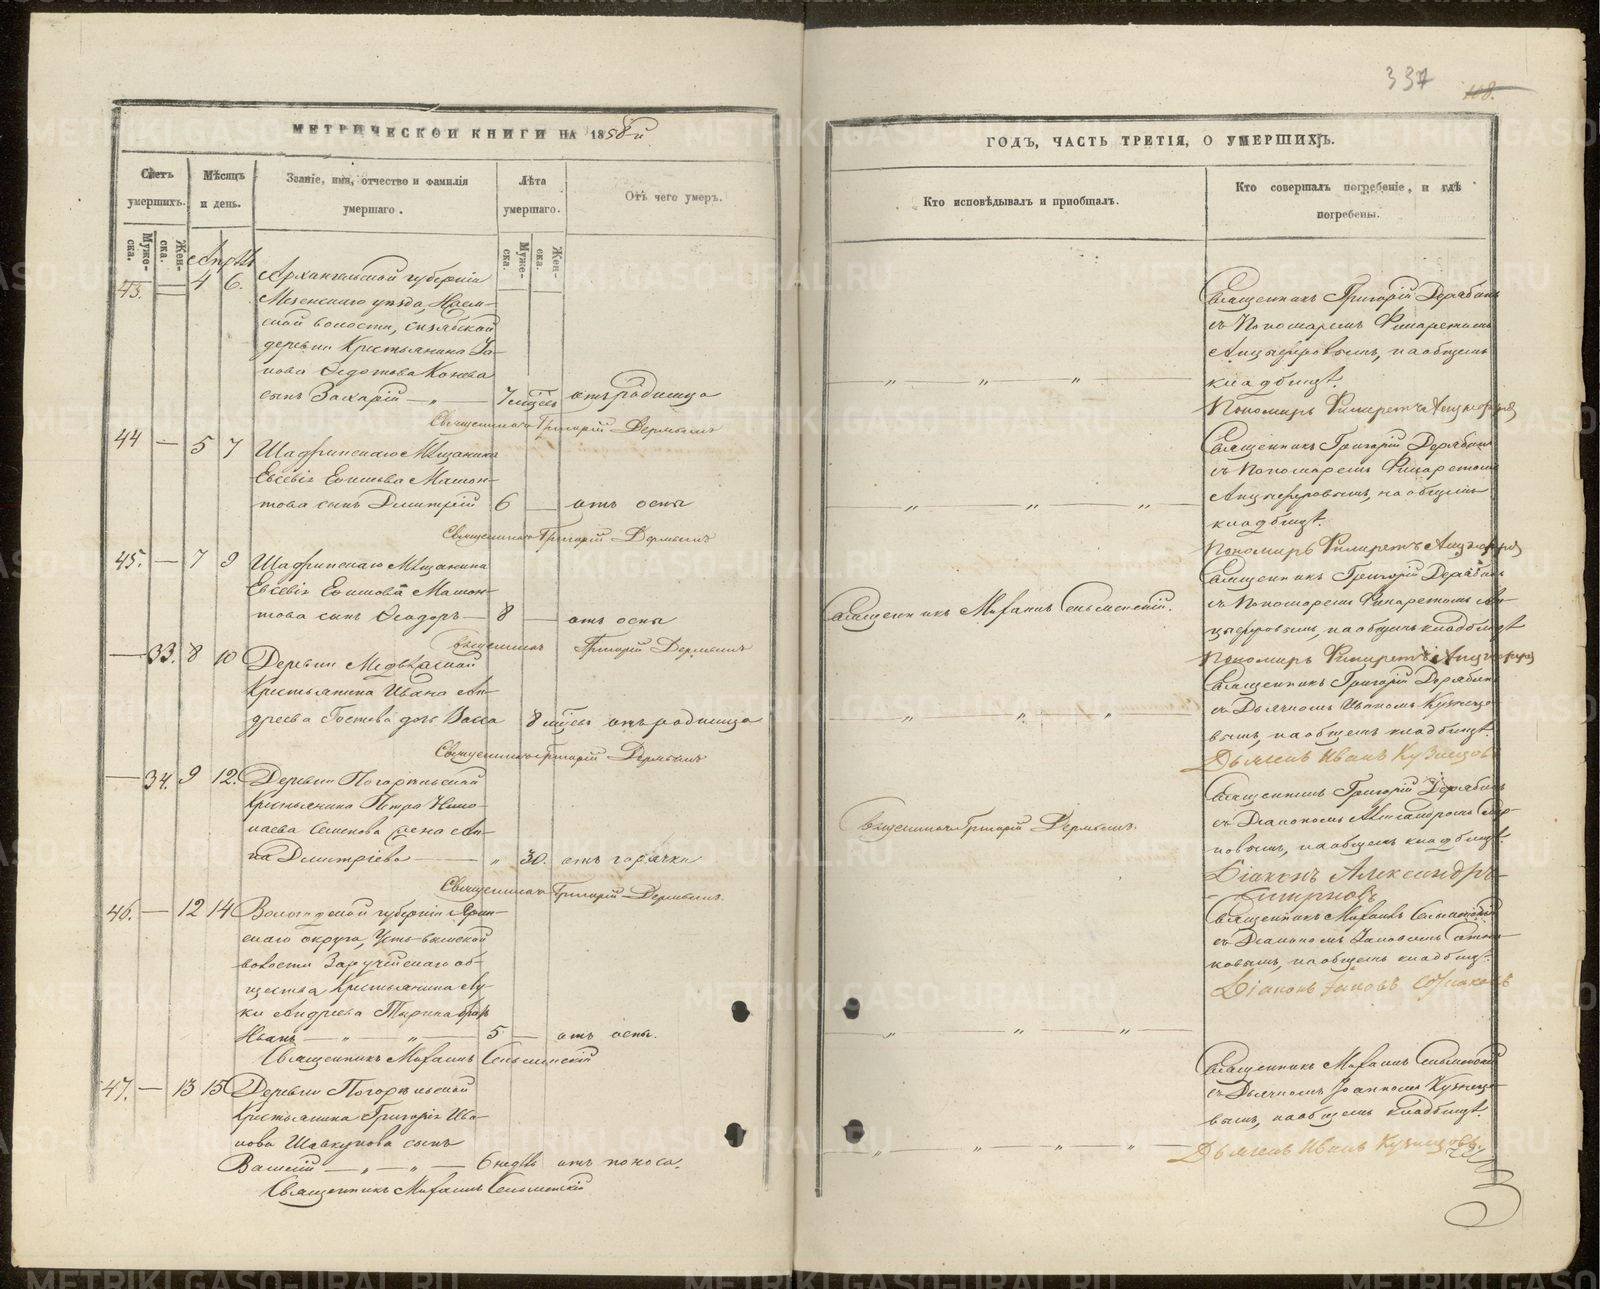 337
118.
МЕТРИЧЕСКОЙ КНИГИ НА 1858й
ГОДЪ, ЧАСТЬ ТРЕТІЯ, О УМЕРШИХЪ.
Счетъ умершихъ.
Муже-ска.
Жен-ска.
Мѣсяцъ и день.
Званіе, имя, отчество и фамилія умершаго.
Лѣта умершаго.
Муже-ска.
Жен-ска.
Отъ чего умеръ.
Кто исповѣдывалъ и пріобщалъ.
Кто совершалъ погребеніе, и гдѣ погребены.
43. — 4 6. Архангельской губерніи
Мезенскаго уѣзда,
ской волости,
деревни Крестьянина Іа-
кова Ѳедотова
сынъ Захарій — 7 мѣсяц. отъ родимца
Священникъ Григорій Дерябинъ
Священникъ Григорій Дерябинъ
съ Пономаремъ Филаретомъ
Анцыферовымъ, на общемъ
кладбищѣ.
Пономарь Филаретъ Анцыферовъ
44 — 5 7 Шадринскаго Мѣщанина
Евсевія Мамон-
това сынъ Дмитрій 6 — отъ оспы
Священникъ Григорій Дерябинъ
Священникъ Григорій Дерябинъ
съ Пономаремъ Филаретомъ
Анцыферовымъ, на общемъ
кладбищѣ.
Пономарь Филаретъ Анцыферовъ
45. — 7 9 Шадринскаго Мѣщанина
Евсевія Мамон-
това сынъ Ѳеодоръ — 8 — отъ оспы
Священникъ Григорій Дерябинъ
Священникъ Михаилъ Сельменскій.
Священникъ Григорій Дерябинъ
съ Пономаремъ Филаретомъ Ан-
цыферовымъ, на общемъ кладбищѣ
Пономарь Филаретъ Анцыферовъ
— 33. 8 10 Деревни
Крестьянина Ивана Ан-
дреева дочь Васса 8 мѣсяц. отъ родимца
Священникъ Григорій Дерябинъ
Священникъ Григорій Дерябинъ
съ Дьячкомъ Иваномъ Кузнецо-
вымъ, на общемъ кладбищѣ.
Дьячекъ Иванъ Кузнецовъ
— 34. 9 12. Деревни Погорѣльской
Крестьянина Петра Нико-
лаева Семенова жена Ан-
на Дмитріева — „ 30. отъ горячки
Священникъ Григорій Дерябинъ.
Священникъ Григорій Дерябинъ.
Священникъ Григорій Дерябинъ
съ Діакономъ Александромъ Смир-
новымъ, на общемъ кладбищѣ.
Діаконъ Александръ
Смирновъ
46. — 12 14 Вологодской губерніи Ярен-
скаго округа, Усть-вымской
волости Заручейскаго об-
щества Крестьянина Лу-
ки Андреева
Иванъ — „ — „ — 5 — отъ оспы.
Священникъ Михаилъ Сельменскій
Священникъ Михаилъ Сельменскій
съ Діакономъ Іаковомъ
на общемъ кладбищѣ.
Діаконъ Іаковъ
47. — 13 15 Деревни Погорѣльской
Крестьянина Григорія Ива-
нова Шавкунова сынъ
Василій — „ — „ — 6 недѣль отъ поноса.
Священникъ Михаилъ Сельменскій
Священникъ Михаилъ Сельменскій
съ Дьячкомъ Іоанномъ Кузнецо-
вымъ, на общемъ кладбищѣ.
Дьячекъ Иванъ Кузнецовъ.
METRIKI.GASO-URAL.RU